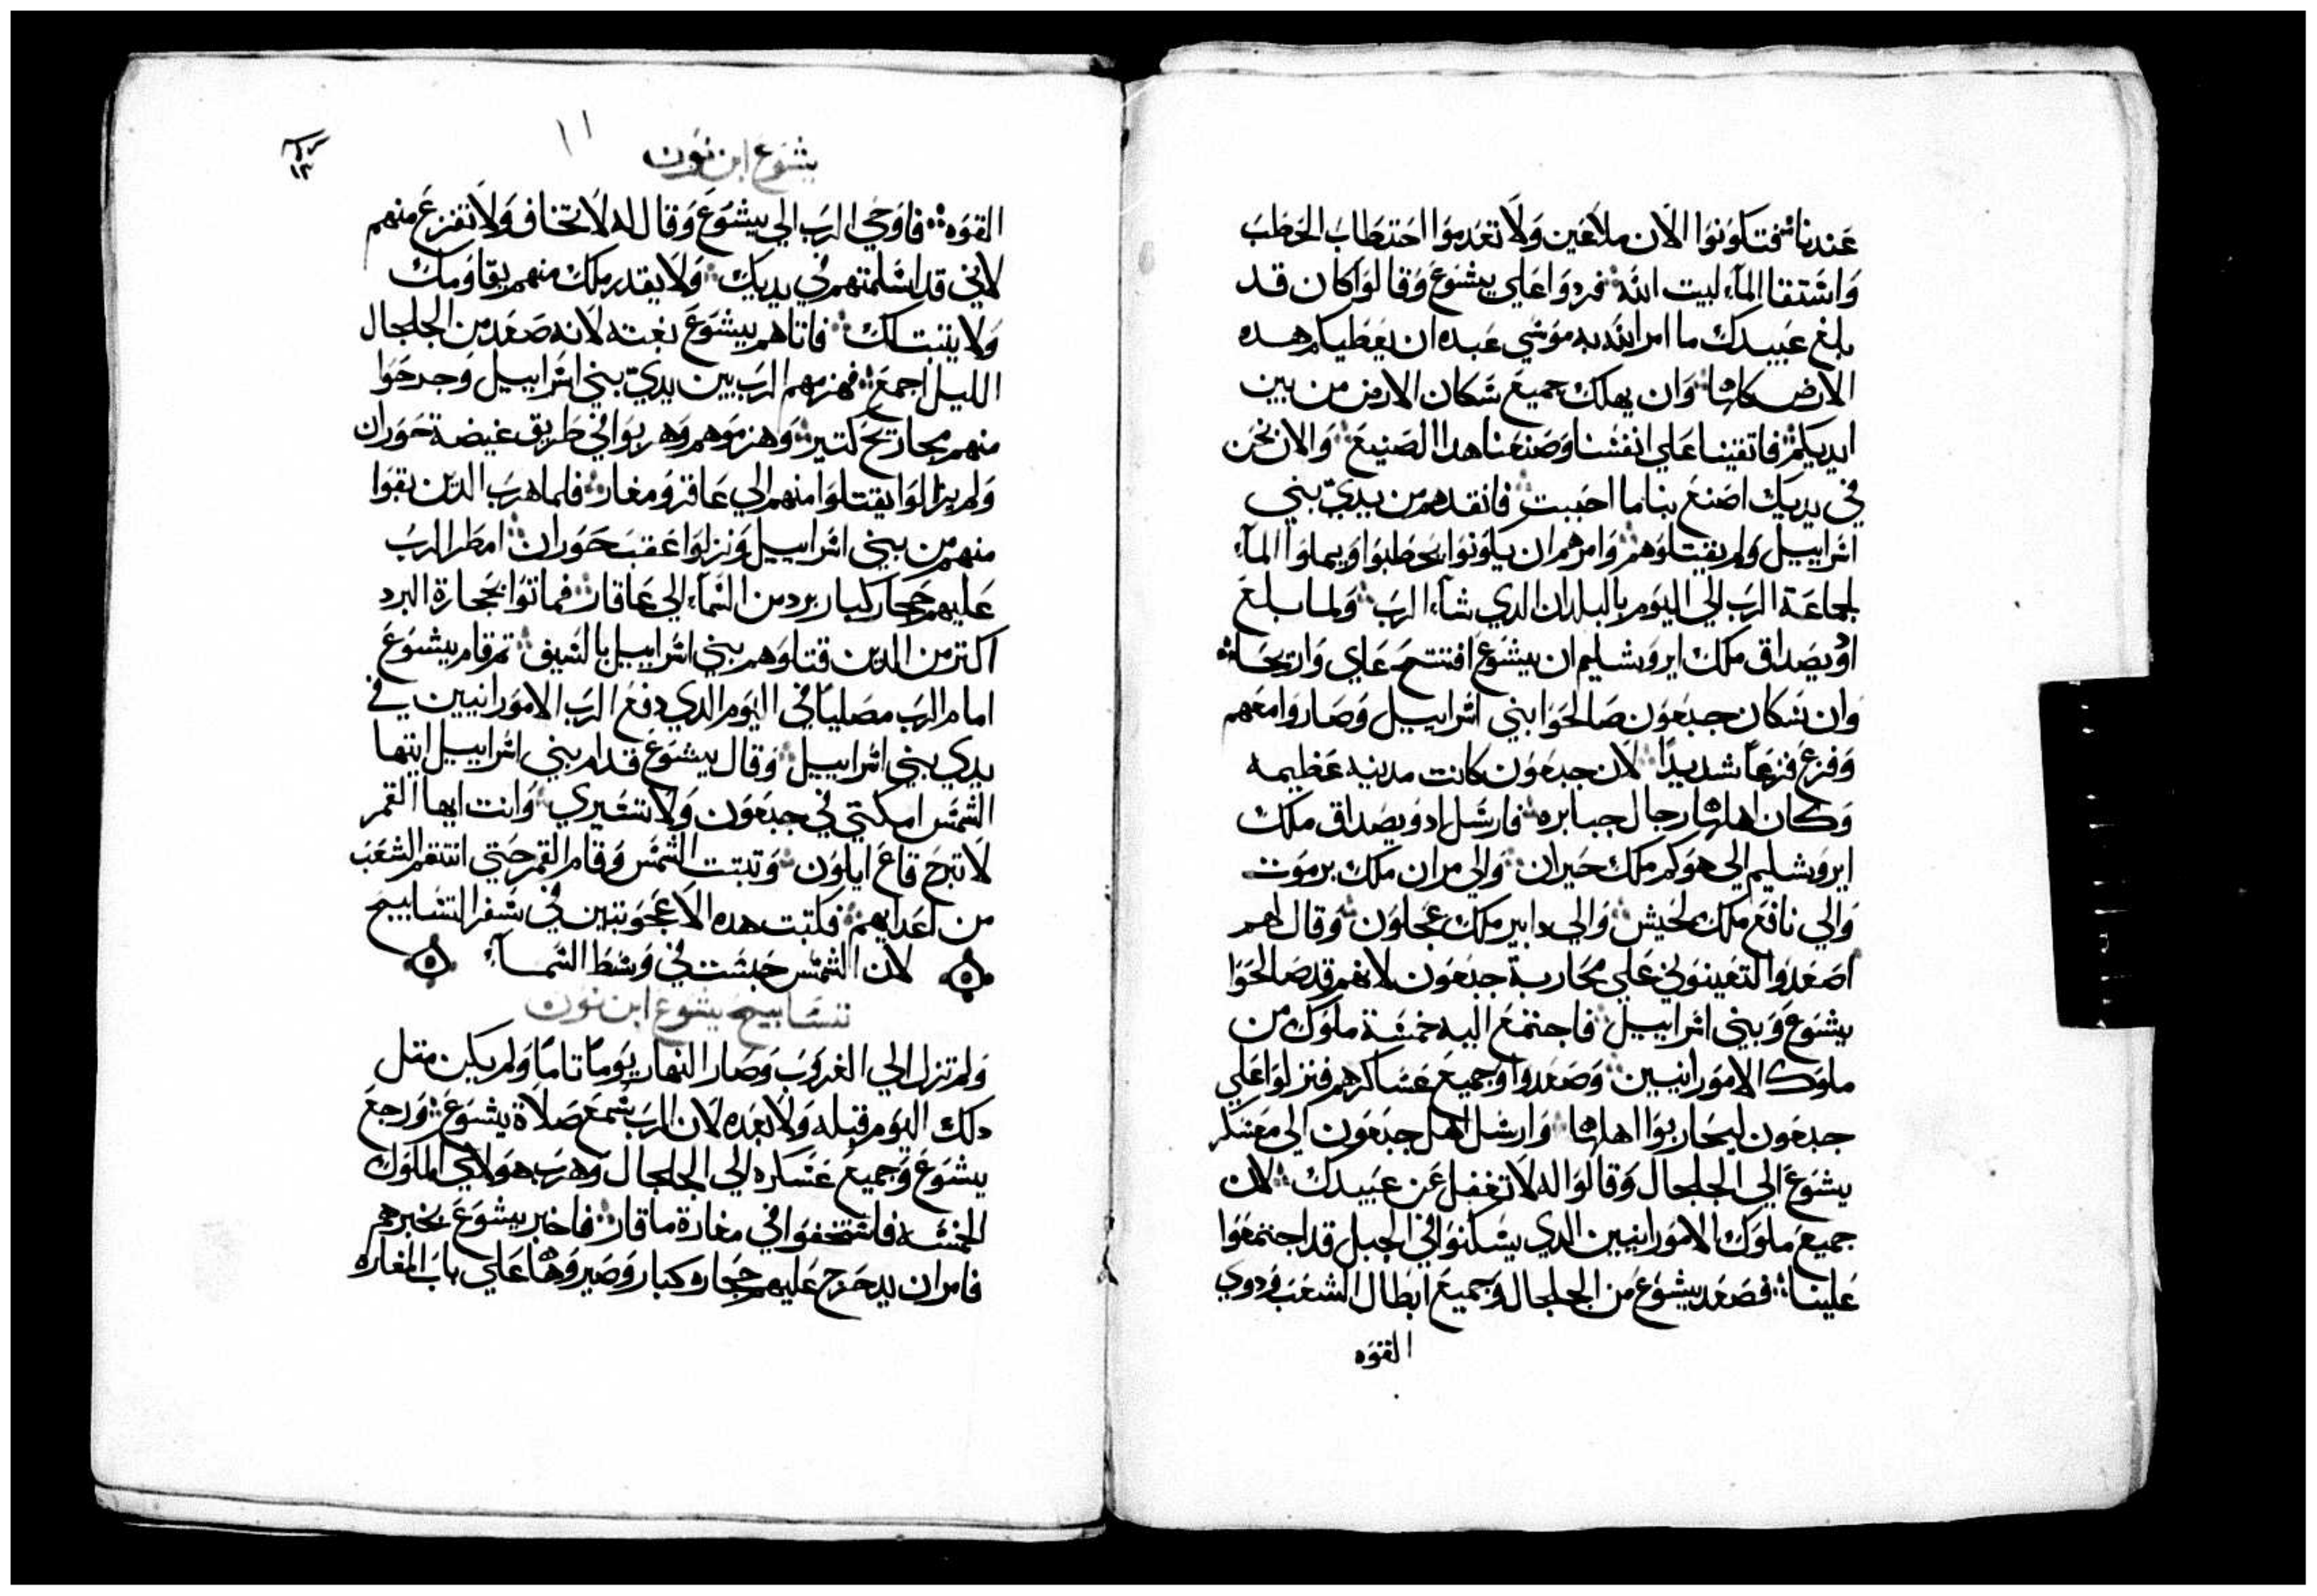 عندنا فتكونوا الان ملاعين ولا تعدموا احتطاب الحطب
واستقا المآء لبيت الله فردوا علي يشوع وقالوا كان قد
بلغ عبيدك ما امر الله به موسي عبده ان يعطيكم هده
الارض كلها وان يهلك جميع سكان الارض من بين
ايديكم فاتقينا علي انفسنا وصنعنا هدا الصنيع والان نحن
في يديك اصنع بنا ما احببت فانقدهم من يدي بني
اسراييل ولم يقتلوهم وامرهم ان يكونوا يحطبوا ويملوا المآء
لجماعة الرب الي اليوم بالبلدان الدي شآء الرب ولما بلغ
ادويصداق ملك ايروشليم ان يشوع افتتح عاي واريحا
وان سكان جبعون صالحوا بني اسراييل وصاروا معهم
وفزع فزعاً شديداً لان جبعون كانت مدينه عظيمه
وكان اهلها رجال جبابره فارسل ادويصداق ملك
ايروشليم الي هوكم ملك حيران والي مران ملك برموت
والي نافع ملك لخيش والي دابير ملك عجلون وقال لهم
اصعدوا لتعينوني علي محاربة جبعون لانهم قد صالحوا
يشوع وبني اسراييل فاجتمع اليه خمسة ملوك من
ملوك الامورانيين وصعدوا وجميع عساكرهم فنزلوا علي
جبعون ليحاربوا اهلها وارسل اهل جبعون الي معسكر
يشوع الي الجلجال وقالوا له لا تغفل عن عبيدك لان
جميع ملوك الامورانيين الدي يسكنوا في الجبل قد اجتمعوا
علينا فصعد يشوع من الجلجال وجميع ابطال الشعب ودوي
القوه
يشوع ابن نون
١١
١٣
القوه فاوحي الرب الي يشوع وقال له لا تخاف ولا تفزع منهم
لاني قد اسلمتهم في يديك ولا يقدر ملك منهم يقاومك
ولا يثبت لك فاتاهم يشوع بغته لانه صعد من الجلجال
الليل اجمع فهزمهم الرب بين يدي بني اسراييل وجرحوا
منهم مجاريح كتير وهزموهم وهربوا في طريق غيضة حوران
ولم يزالوا يقتلوا منهم الي عاقز ومغار فلما هرب الدين بقوا
منهم من بني اسراييل ونزلوا عقب حوران امطر الرب
عليهم حجار كبار برد من السمآء الي عاقار فماتوا بحجارة البرد
اكتر من الدين قتلوهم بني اسراييل بالسيف تم قام يشوع
امام الرب مصلياً في اليوم الدي دفع الرب الامورانيين في
يدي بني اسراييل وقال يشوع قدام بني اسراييل ايتها
الشمس امكتي في جبعون ولا تسيري وانت ايها القمر
لا تبرح قاع ايلون وتبتت الشمس وقام القمر حتي انتقم الشعب
من اعدايهم فكتبت هده الاعجوبتين في سفر التسابيح
لان الشمس حبست في وسط السمآء
تسابيح يشوع ابن نون
ولم تنزل الي الغروب وصار النهار يوماً تاماً ولم يكن متل
دلك اليوم قبله ولا بعده لان الرب سمع صلاة يشوع ورجع
يشوع وجميع عسكره الي الجلجال وهرب هولاي الملوك
الخمسه فاستخفوا في مغارة ماقار فاخبر يشوع بخبرهم
فامر ان يدحرج عليهم حجار كبار وصيروها علي باب المغاره